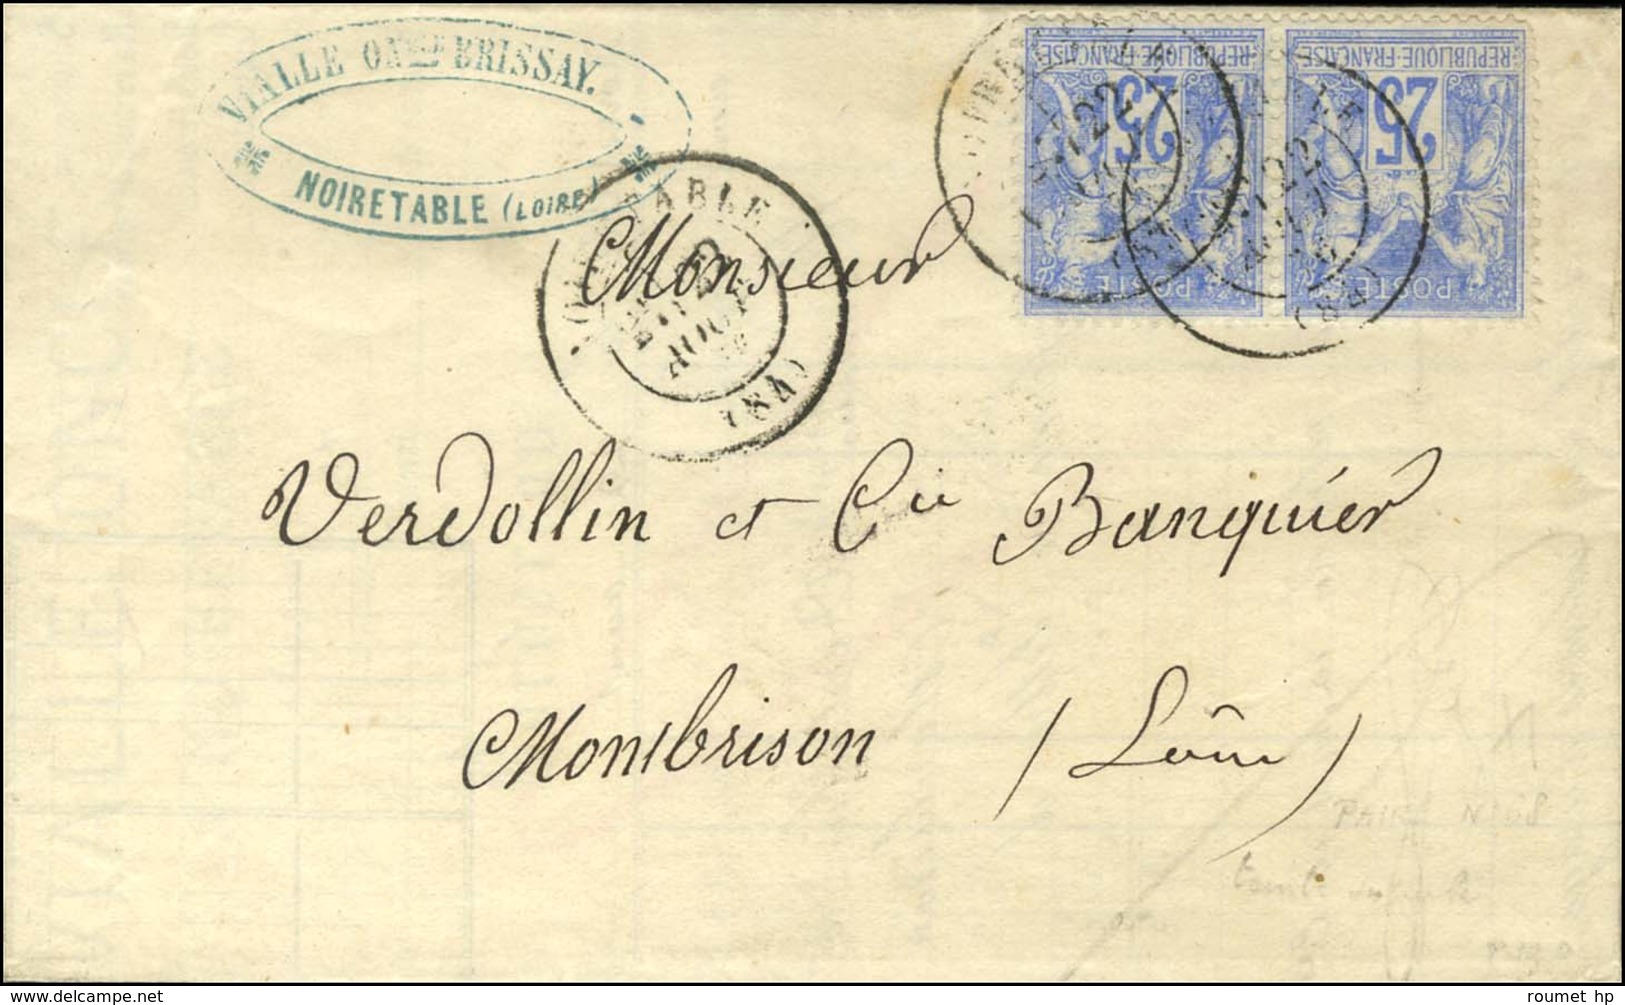 VIALLE ONCLE BRISSAY.
NOIRETABLE (LOIRE)
REPUBLIQUE-FRANÇAISE
25
POSTES
REPUBLIQUE-FRANÇAISE
25
POSTES
22
22
AOUT
TABLE
AOUT
(84)
Monsieur
Verdollin et Cie Banquier
Montbrison (Loire)
PAIRE N
roumet hp